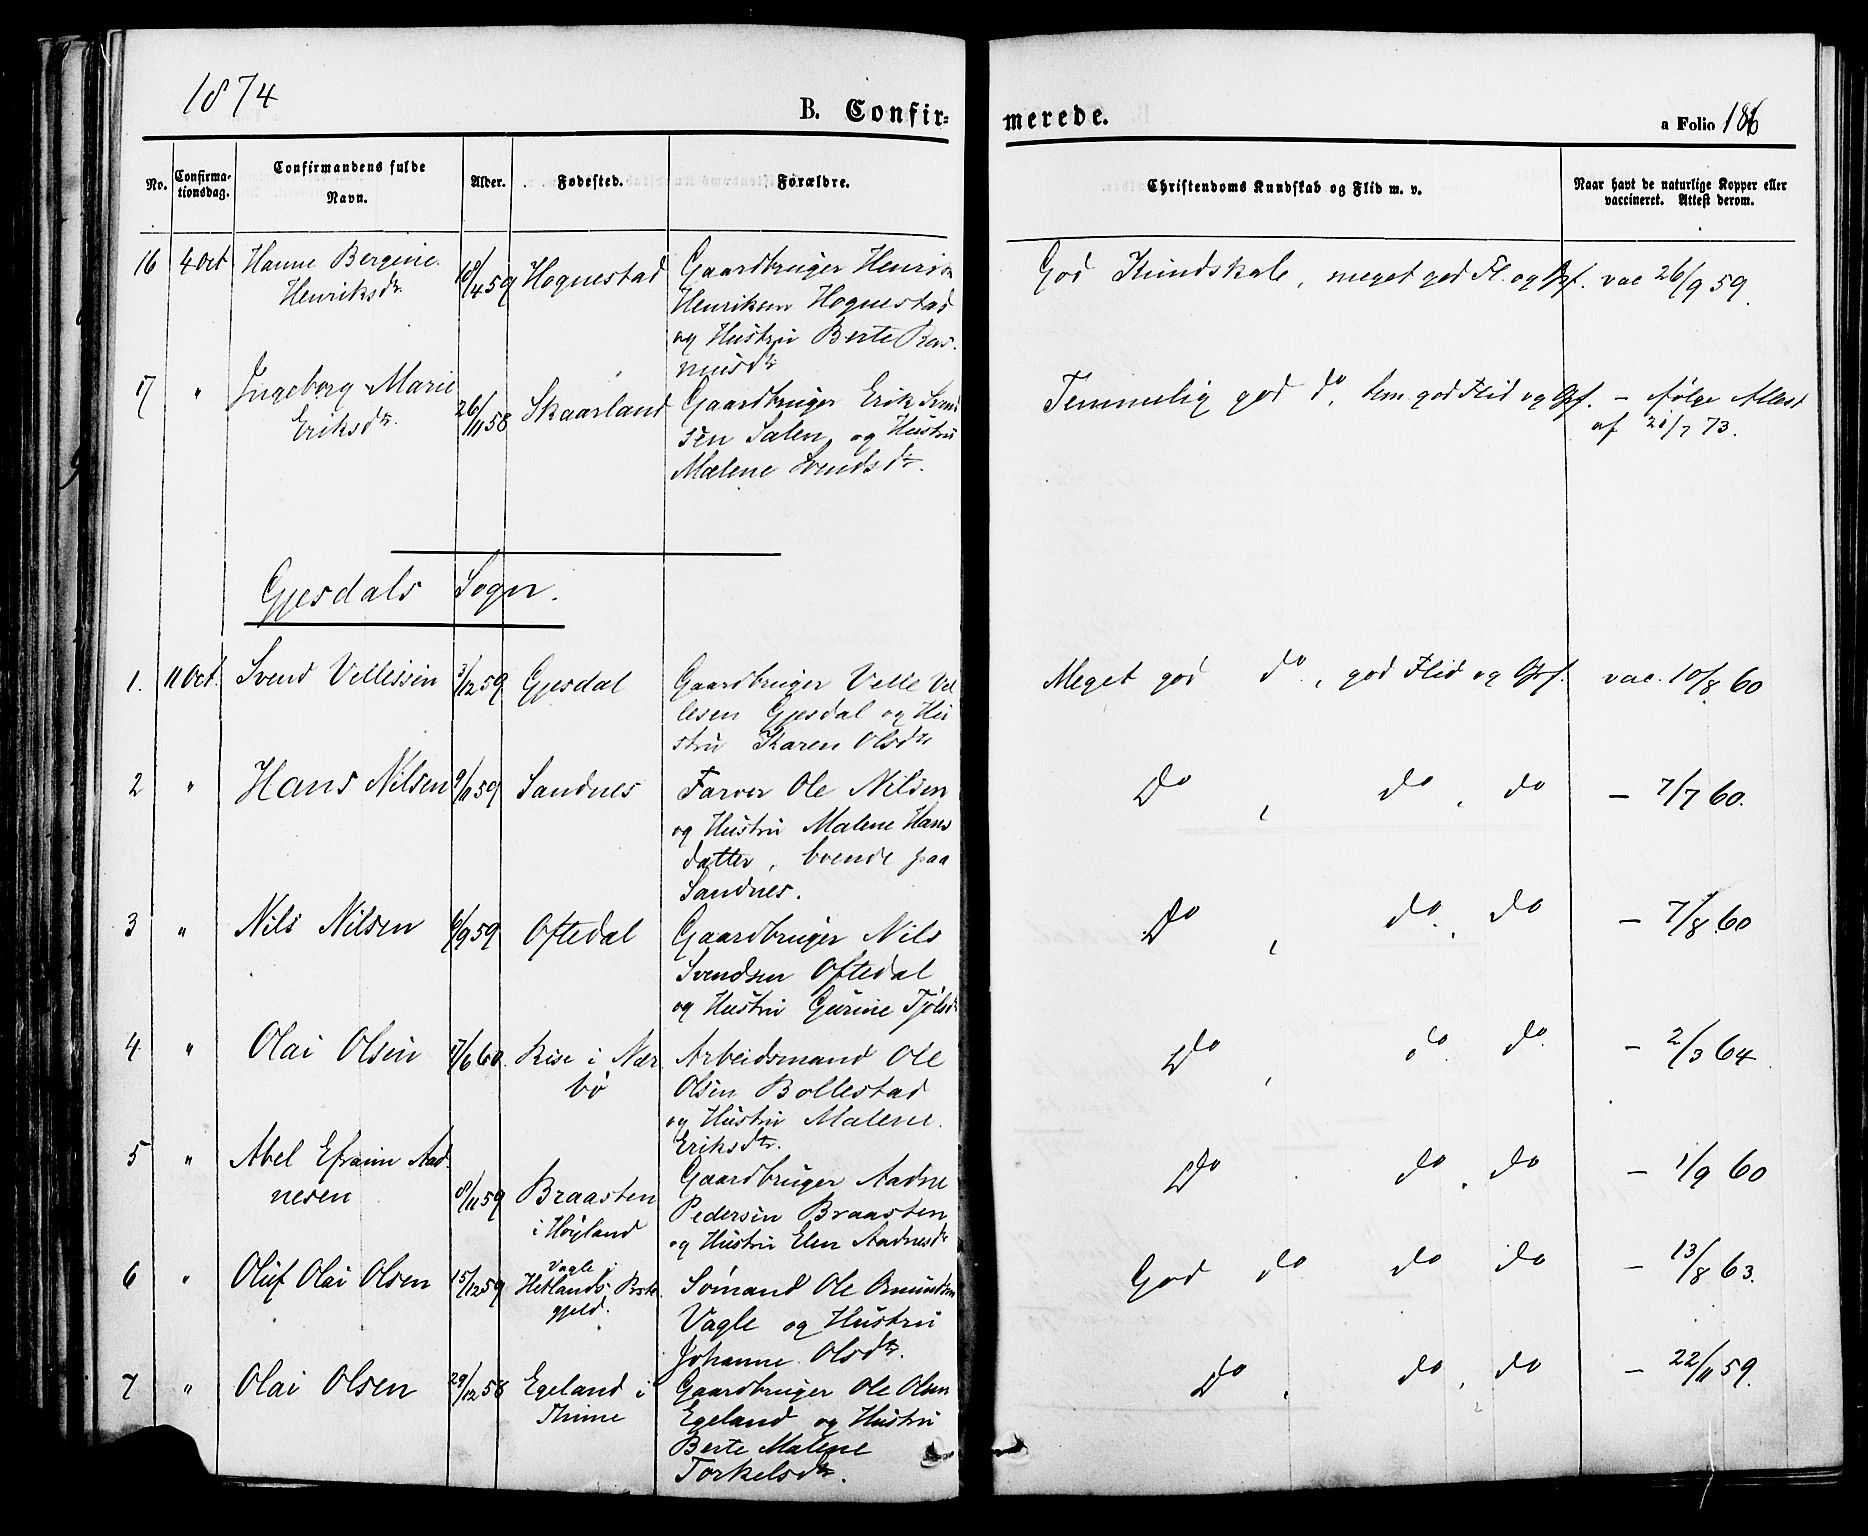 1874
B. Confir=
merede.
a Folio 186
No.
Confirma-
tionsdag.
Confirmandens fulde
Navn.
Alder.
Fødested.
Forældre.
Christendoms Kundskab og Flid m. v.
Naar havt de naturlige Kopper eller
vaccineret. Attest derom.
16 4 Oct Hanne Bergine 18/4 59 Hognestad Gaardbruger Henrik God Kundskab, meget god Fl. og Opf. vac 26/9 59.
Henriksdr. Henriksen Hognestad
og Hustru Berte Ras-
musdtr
17 " Ingeborg Marie 26/11 58 Skaarland Gaardbruger Erik Svend Temmelig god do, tem. god Flid og Opf. – følge Attest
Eriksdtr. sen Salen og Hustru af 21/7 73.
Malene Svendsdtr.
Gjesdals Sogn.
1. 11 Oct. Svend Vellessen 3/12 59 Gjesdal Gaardbruger Velle Vel Meget god do, god Flid og Opf. vac. 10/8 60
lesen Gjesdal og Hu
stru Karen Olsdtr
2 " Hans Nilsen 9/11 59 Sandnes Farver Ole Nilsen Do, do, do – 7/7 60.
og Hustru Malene Hans
datter, boende paa
Sandnes.
3 " Nils Nilsen 6/9 59 Oftedal Gaardbruger Nils Do, do, do – 7/8 60
Svendsen Oftedal
og Hustru Gurine Tjølsd
4 " Olai Olsen 17/6 60. Rise i Nær Arbeidsmand Ole Do, do. do. – 2/3 64
bø Olsen Bollestad
og Hustru Malene
Eriksdtr.
5 " Abel Efraim Aad- 8/11 59 Braasten Gaardbruger Aadne Do do, do – 1/9 60
nesen i Høyland Pedersen Braasten
og Hustru Elen Aadnesdr
6 " Oluf Olai Olsen 15/12 59 Vagle i Sømand Ole Osmundsen God do do do – 13/8 63.
Hetlands Præste
gjeld. Vagle og Hustru
Johanne Olsdtr.
7 " Olai Olsen 29/12 58 Egeland i Gaardbruger Ole Olsen Do, do, do – 22/11 59.
Thime Egeland og Hustru
Berte Malene
Torkelsdtr.